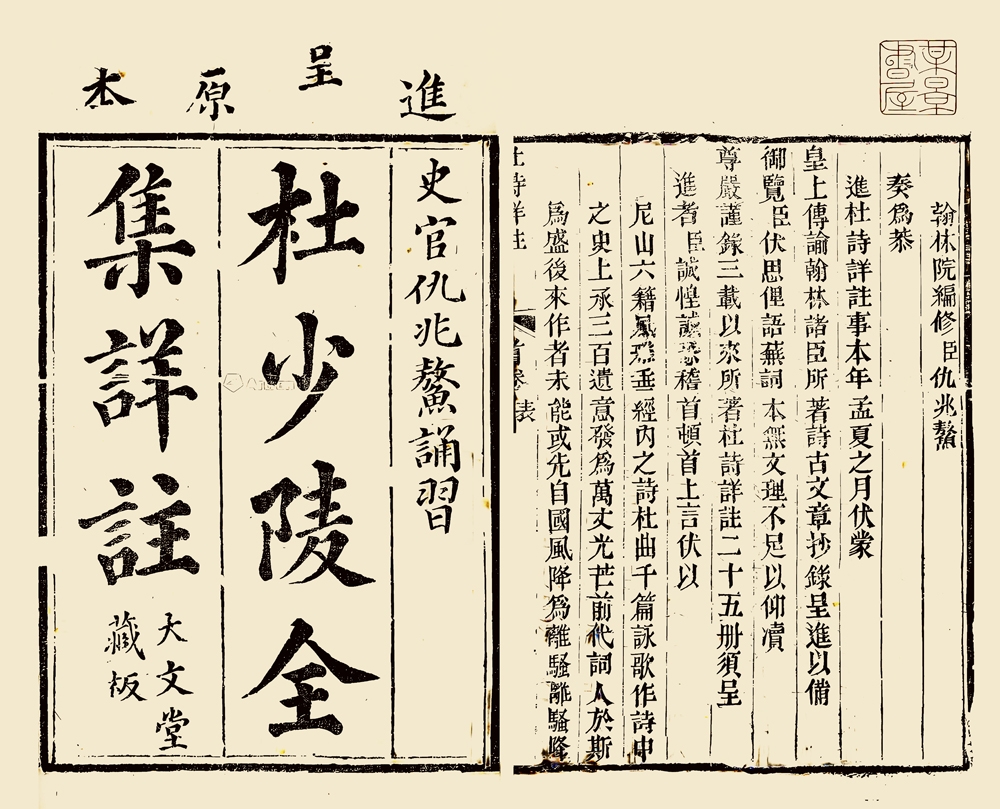 翰林院編修臣仇兆鰲
奏爲恭
進杜詩詳註事本年孟夏之月伏蒙
皇上傳諭翰林諸臣所著詩古文章抄錄呈進以備
御覽臣伏思俚語蕪詞本無文理不足以仰瀆
尊嚴謹錄三載以來所著杜詩詳註二十五册須呈
進者臣誠惶誠恐稽首頓首上言伏以
尼山六籍風雅垂經內之詩杜曲千篇詠歌作詩中
之史上承三百遺意發爲萬丈光芒前代詞人於斯
爲盛後來作者未能或先自國風降爲離騷離騷降
杜詩詳註 首卷 表
進呈原本
史官仇兆鰲誦習
杜少陵全
集詳註
大文堂
藏板